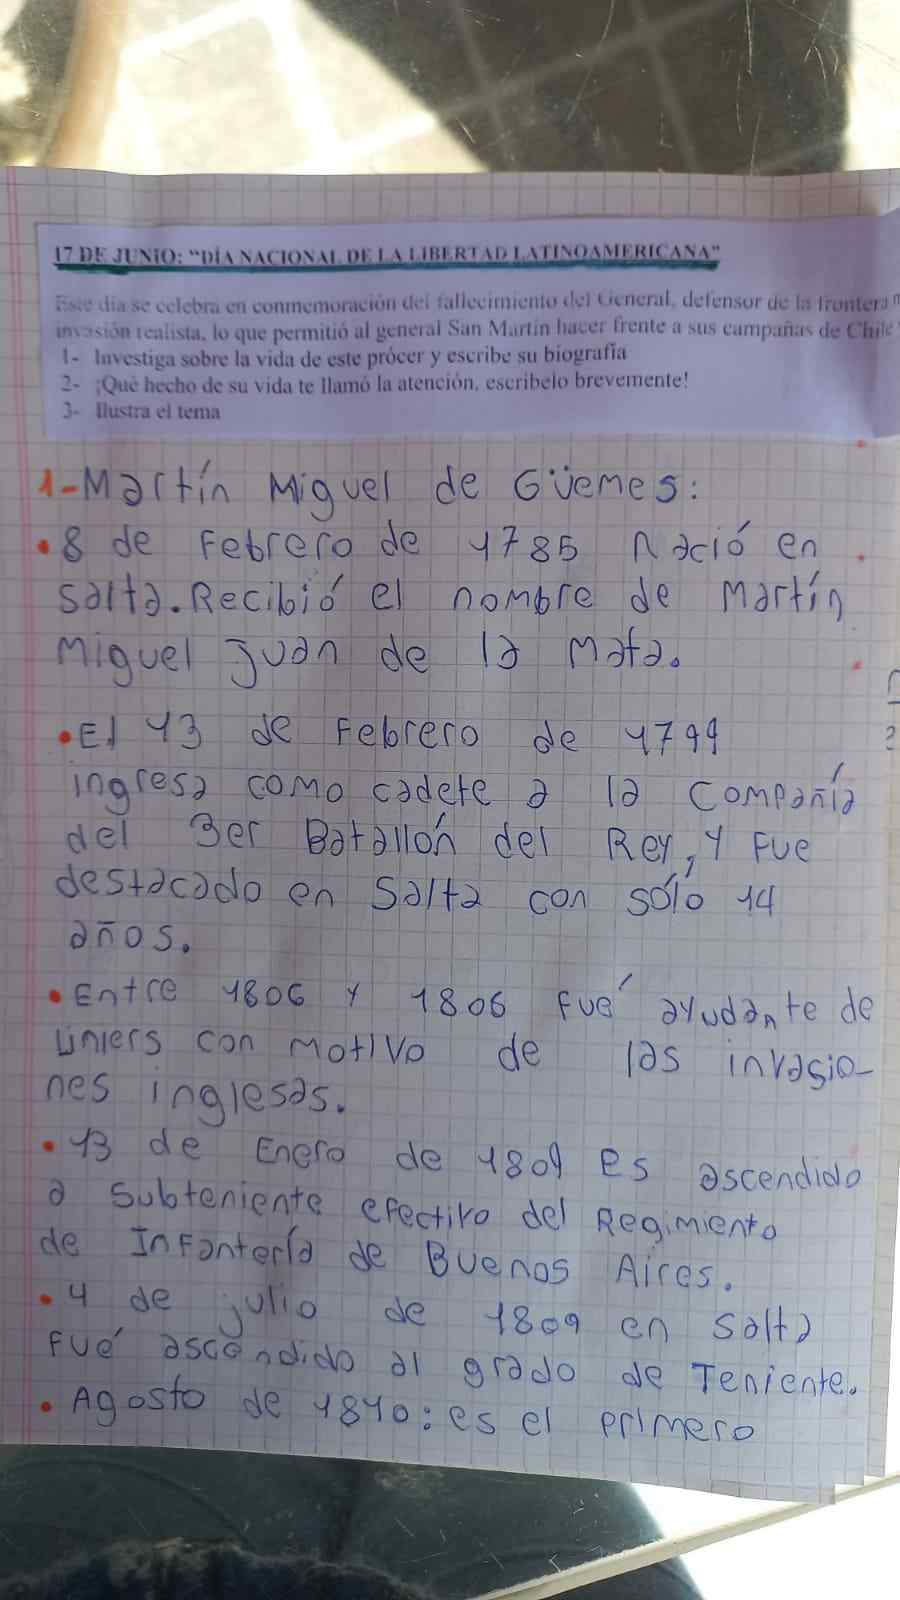 17 DE JUNIO: “DÍA NACIONAL DE LA LIBERTAD LATINOAMERICANA”
Este día se celebra en conmemoración del fallecimiento del General, defensor de la frontera
invasión realista, lo que permitió al general San Martín hacer frente a sus campañas de Chile
1- Investiga sobre la vida de este prócer y escribe su biografía
2- ¡Qué hecho de su vida te llamó la atención, escribelo brevemente!
3- Ilustra el tema
1-Martín Miguel de Güemes:
• 8 de Febrero de 1785 Nació en
Salta. Recibió el nombre de Martín
Miguel Juan de la Mata.
• El 13 de Febrero de 1799
ingresa como cadete a la Compañía
del 3er Batallón del Rey, y Fue
destacado en Salta con sólo 14
años.
• Entre 1806 y 1806 Fué ayudante de
Liniers con motivo de las invasio-
nes inglesas.
• 13 de Enero de 1809 es ascendido
a Subteniente efectivo del Regimiento
de Infantería de Buenos Aires.
• 4 de julio de 1809 en Salta
Fué ascendido al grado de Teniente.
• Agosto de 1810: es el primero